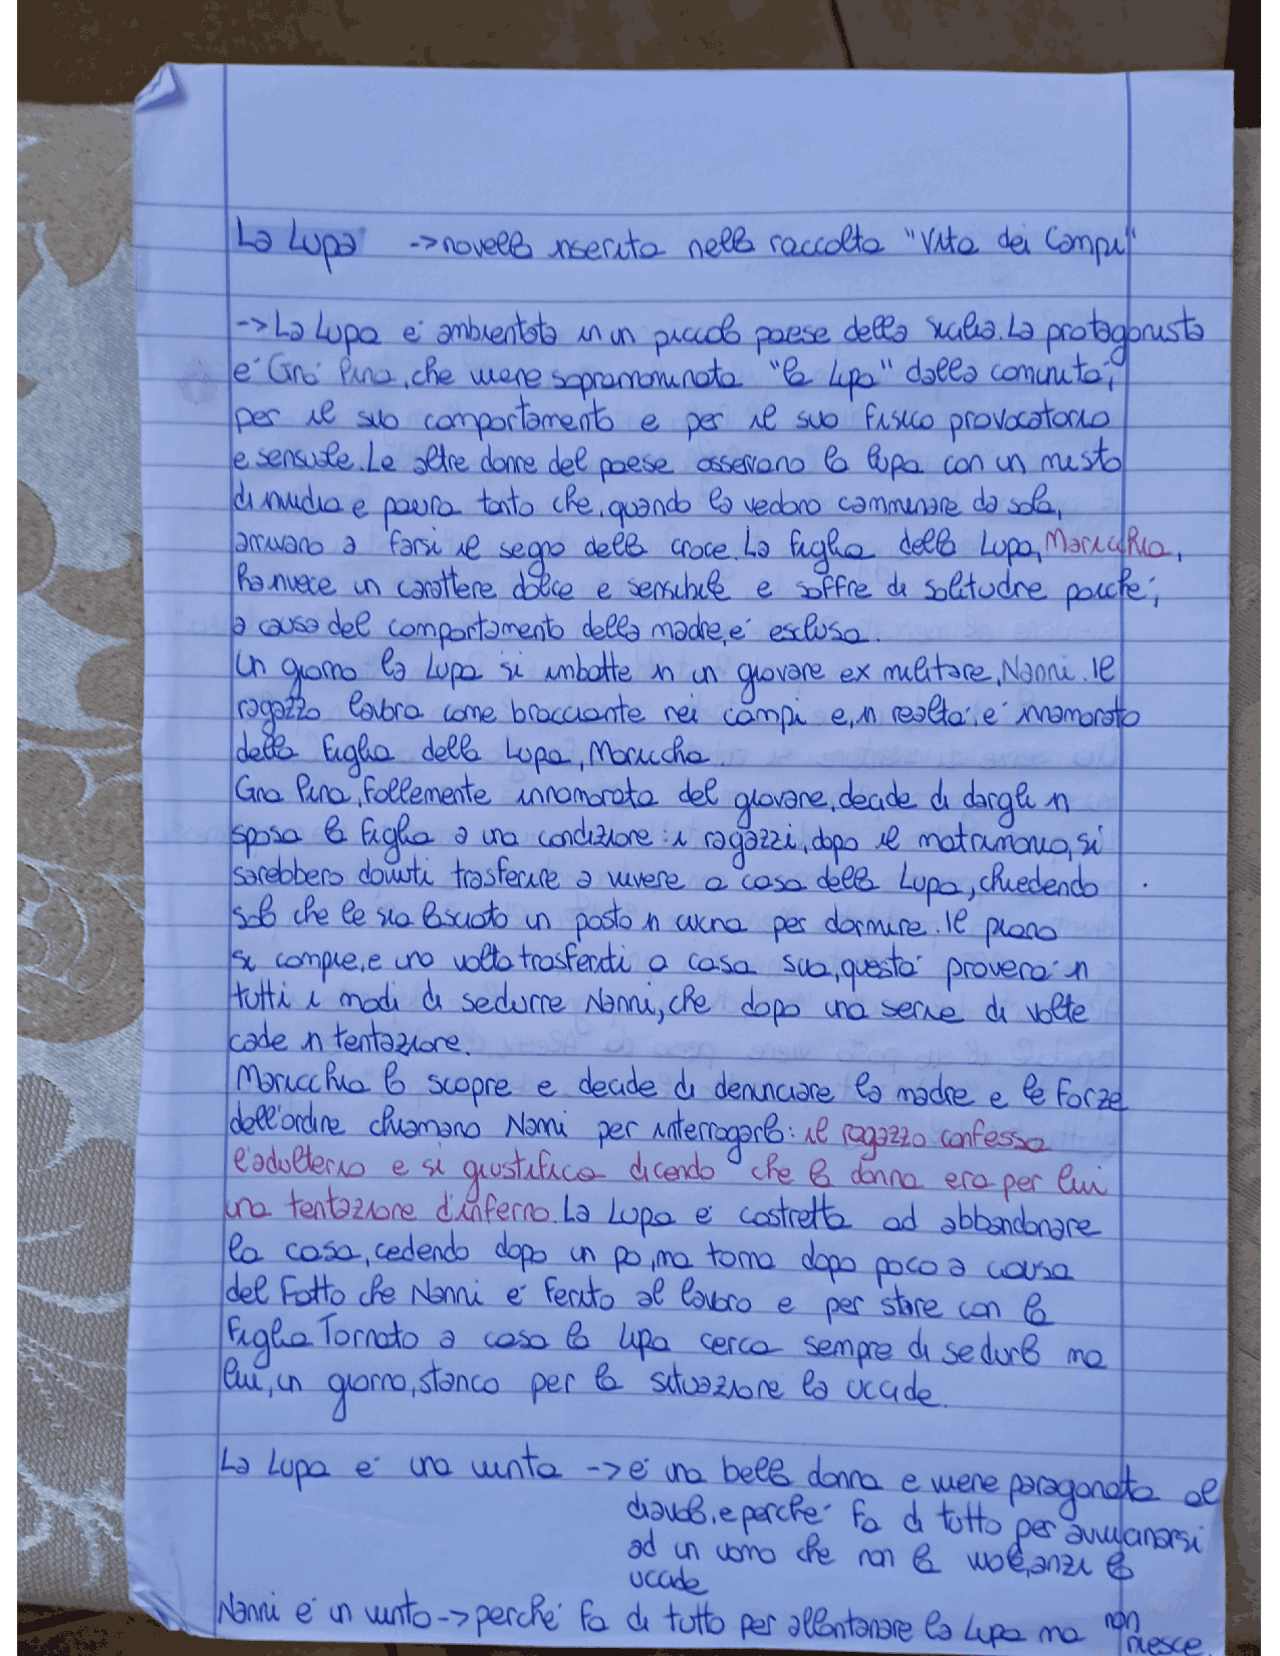 La Lupa -> novella inserita nella raccolta "Vita dei Campi"
-> La Lupa é ambientata in un piccolo paese della sicilia. La protagonista
é Gna' Pina, che viene soprannominata "la Lupa" dalla comunità,
per il suo comportamento e per il suo fisico provocatorio
e sensuale. Le altre donne del paese osservano la lupa con un misto
di invidia e paura tanto che, quando la vedono camminare da sola,
arrivano a farsi il segno della croce. La figlia della Lupa, Maricchia,
ha invece un carattere dolce e sensibile e soffre di solitudine poiché,
a causa del comportamento della madre, é esclusa.
Un giorno la Lupa si imbatte in un giovane ex militare, Nanni. Il
ragazzo lavora come bracciante nei campi e, in realtà, é innamorato
della figlia della Lupa, Maricchia.
Gna Pina, follemente innamorata del giovane, decide di dargli in
sposa la figlia a una condizione: i ragazzi, dopo il matrimonio, si
sarebbero dovuti trasferire a vivere a casa della Lupa, chiedendo
solo che le sia lasciato un posto in cucina per dormire. Il piano
si compie, e una volta trasferiti a casa sua, questa proverà in
tutti i modi di sedurre Nanni, che dopo una serie di volte
cade in tentazione.
Maricchia lo scopre e decide di denunciare la madre e le forze
dell'ordine chiamano Nanni per interrogarlo: il ragazzo confessa
l'adulterio e si giustifica dicendo che la donna era per lui
una tentazione d'inferno. La Lupa é costretta ad abbandonare
la casa, cedendo dopo un po, ma torna dopo poco a causa
del fatto che Nanni é ferito al lavoro e per stare con la
figlia Tornato a casa la lupa cerca sempre di sedurlo ma
lui, un giorno, stanco per la situazione la uccide.
La Lupa é una vinta -> é una bella donna e viene paragonata al
diavolo, e perché fa di tutto per avvicinarsi
ad un uomo che non la vuole, anzi la
uccide
Nanni é un vinto -> perché fa di tutto per allontanare la Lupa ma non
riesce.